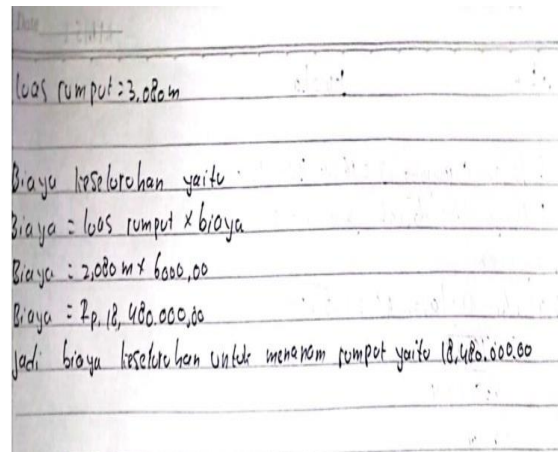 Date
luas rumput = 3.080 m
Biaya keseluruhan yaitu
Biaya = luas rumput x biaya
Biaya = 2,080 m x 6000,00
Biaya = Rp. 18,480.000,00
Jadi biaya keseluruhan untuk menanam rumput yaitu 18,480.000.00